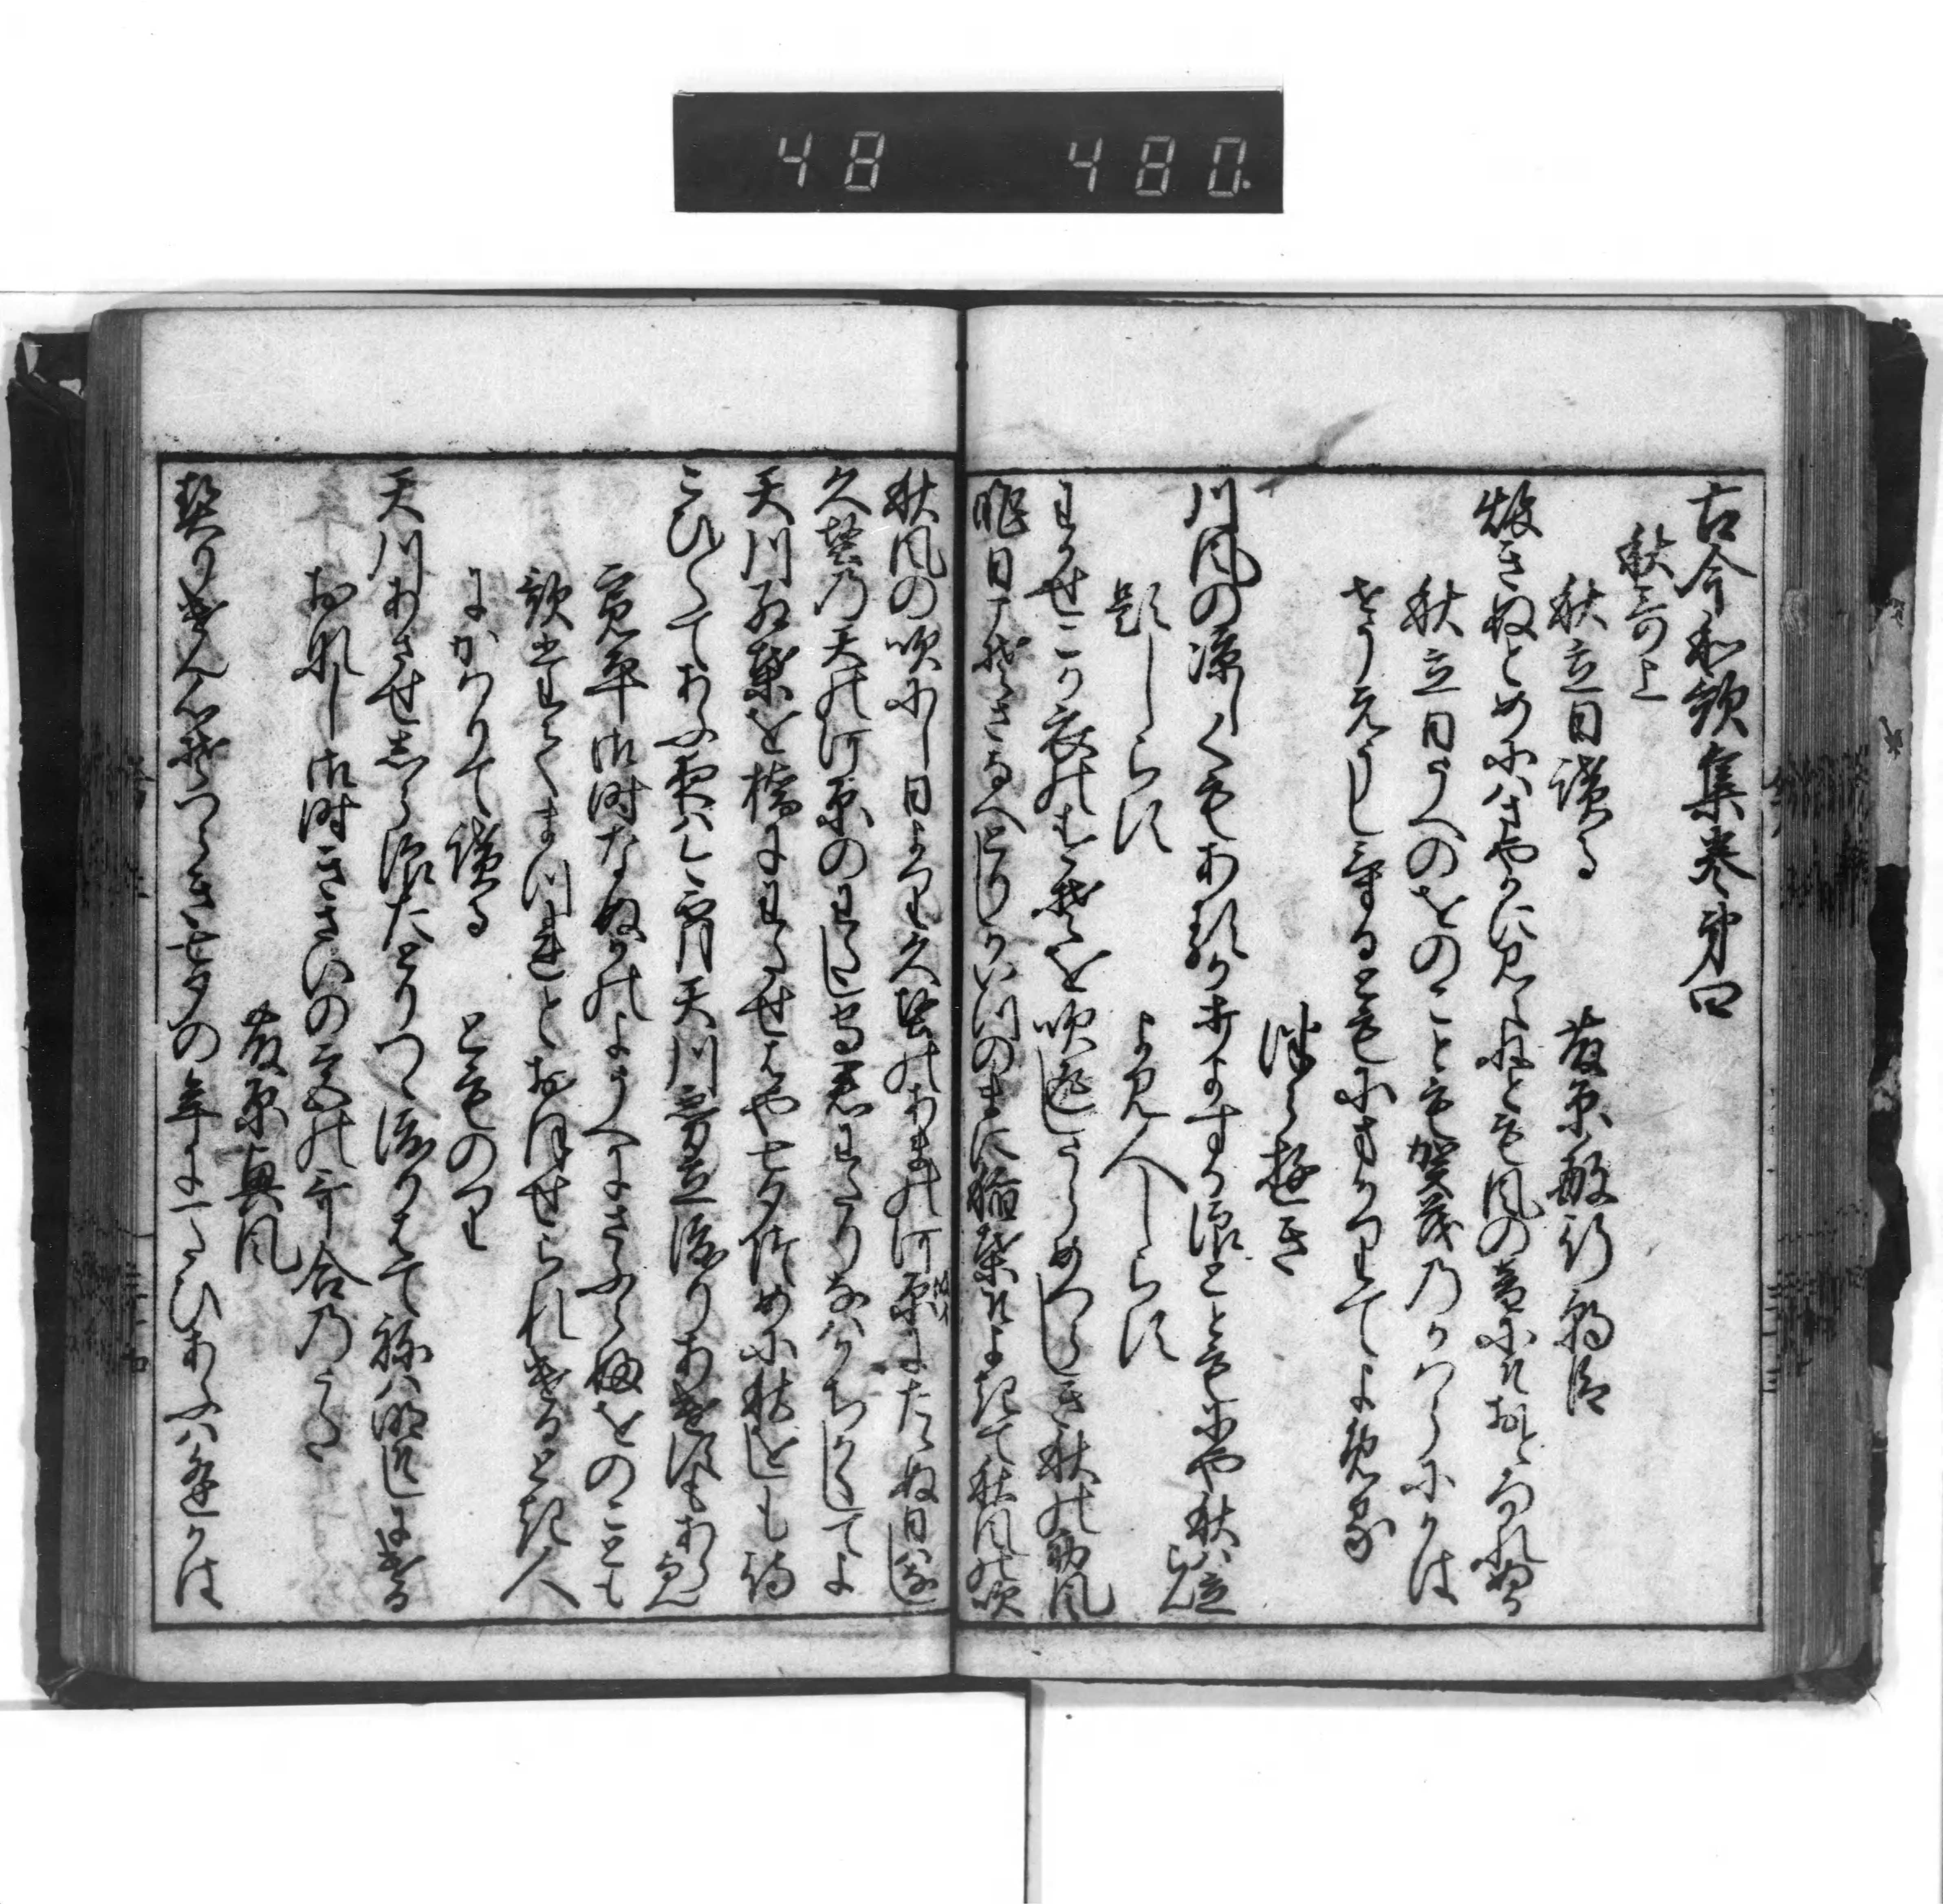 48 480.
古今和歌集巻第四
秋哥上
秋立日讀る 藤原敏行朝臣
秋きぬとめにはさやかに見えねとも風の音にそおとろかれぬる
秋立日うへのをのことも賀茂のかはらにかは
せうえうしける ともにまかりてよめる
つらゆき
川風の涼しくもあるか打よする浪とともにや秋は立らん
題しらす よみ人しらす
わかせこか衣のすそを吹返しうらめつらしき秋の初風
昨日こそさなへとりしかいつのまに稲葉そよきて秋風の吹
秋風の吹にし日より久堅のあまの河原にたゝぬ日はなし
久堅の天の河原のわたし守君わたりなはかちかくしてよ
天川紅葉を橋にわたせはや七夕つめの秋をしも待
こひ〳〵てあふ夜はこよひ天川霧立渡りあけすもあらなん
寛平御時なぬかのよううへにさふらふをのことも
歌たてまつれとおほせられける時人
にかはりて讀る とものり
天川あさせしら浪たとりつゝ渡りはてねは明そしにける
おなし御時きさいの宮の哥合のうた
藤原興風
契りけん心そつらき七夕の年に一たひあふはあふかは